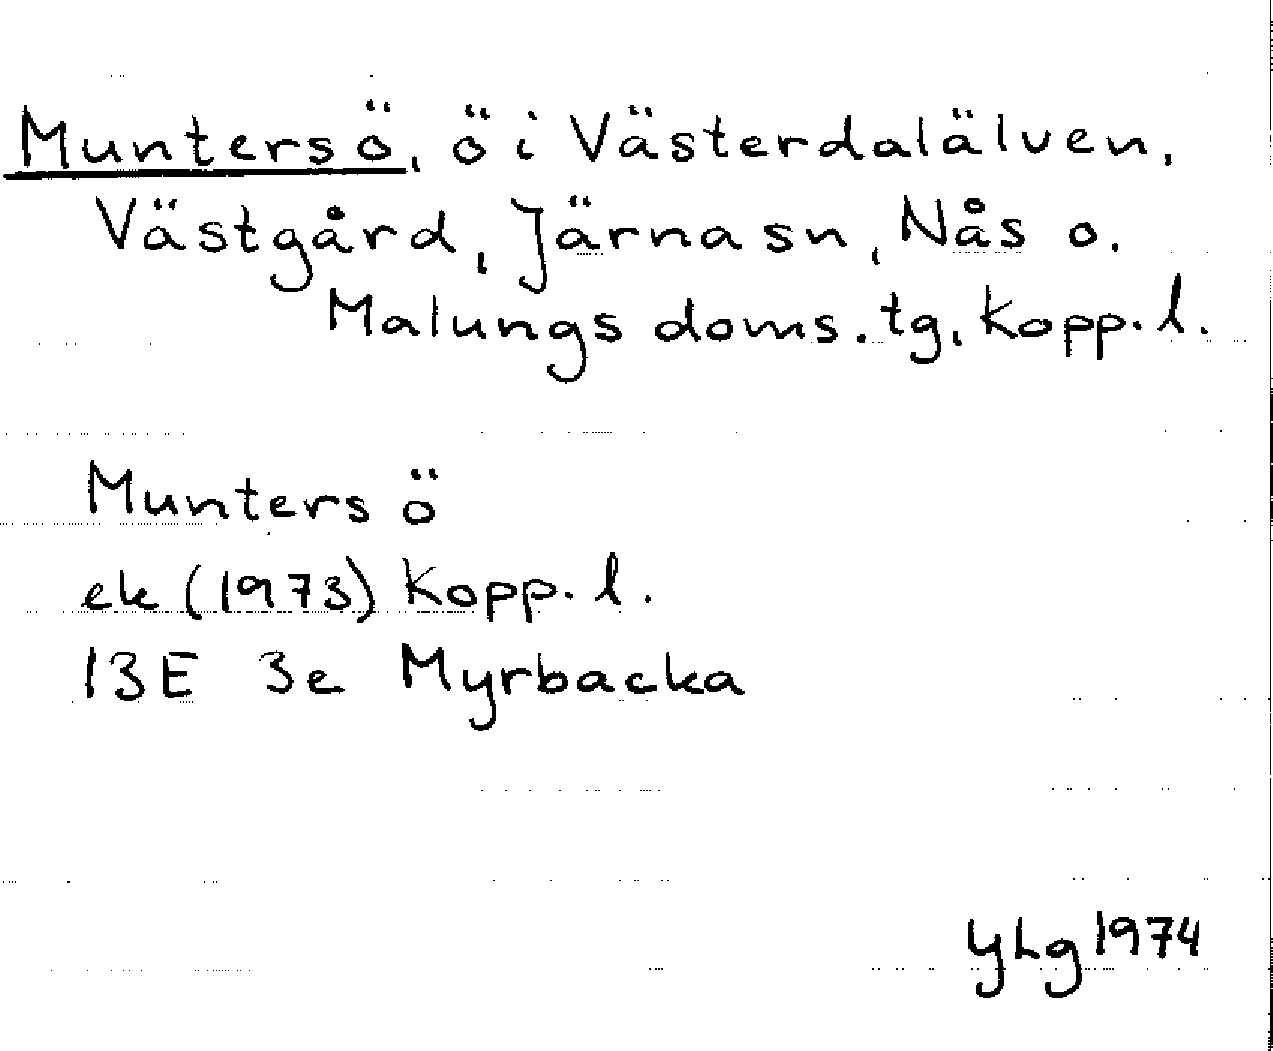 Muntersö, ö i Västerdalälven,
Västgård, Järna sn, Nås o.
Malungs doms.tg, Kopp. l.
Munters ö
ek (1973) Kopp. l.
13E 3e Myrbacka
YLg 1974